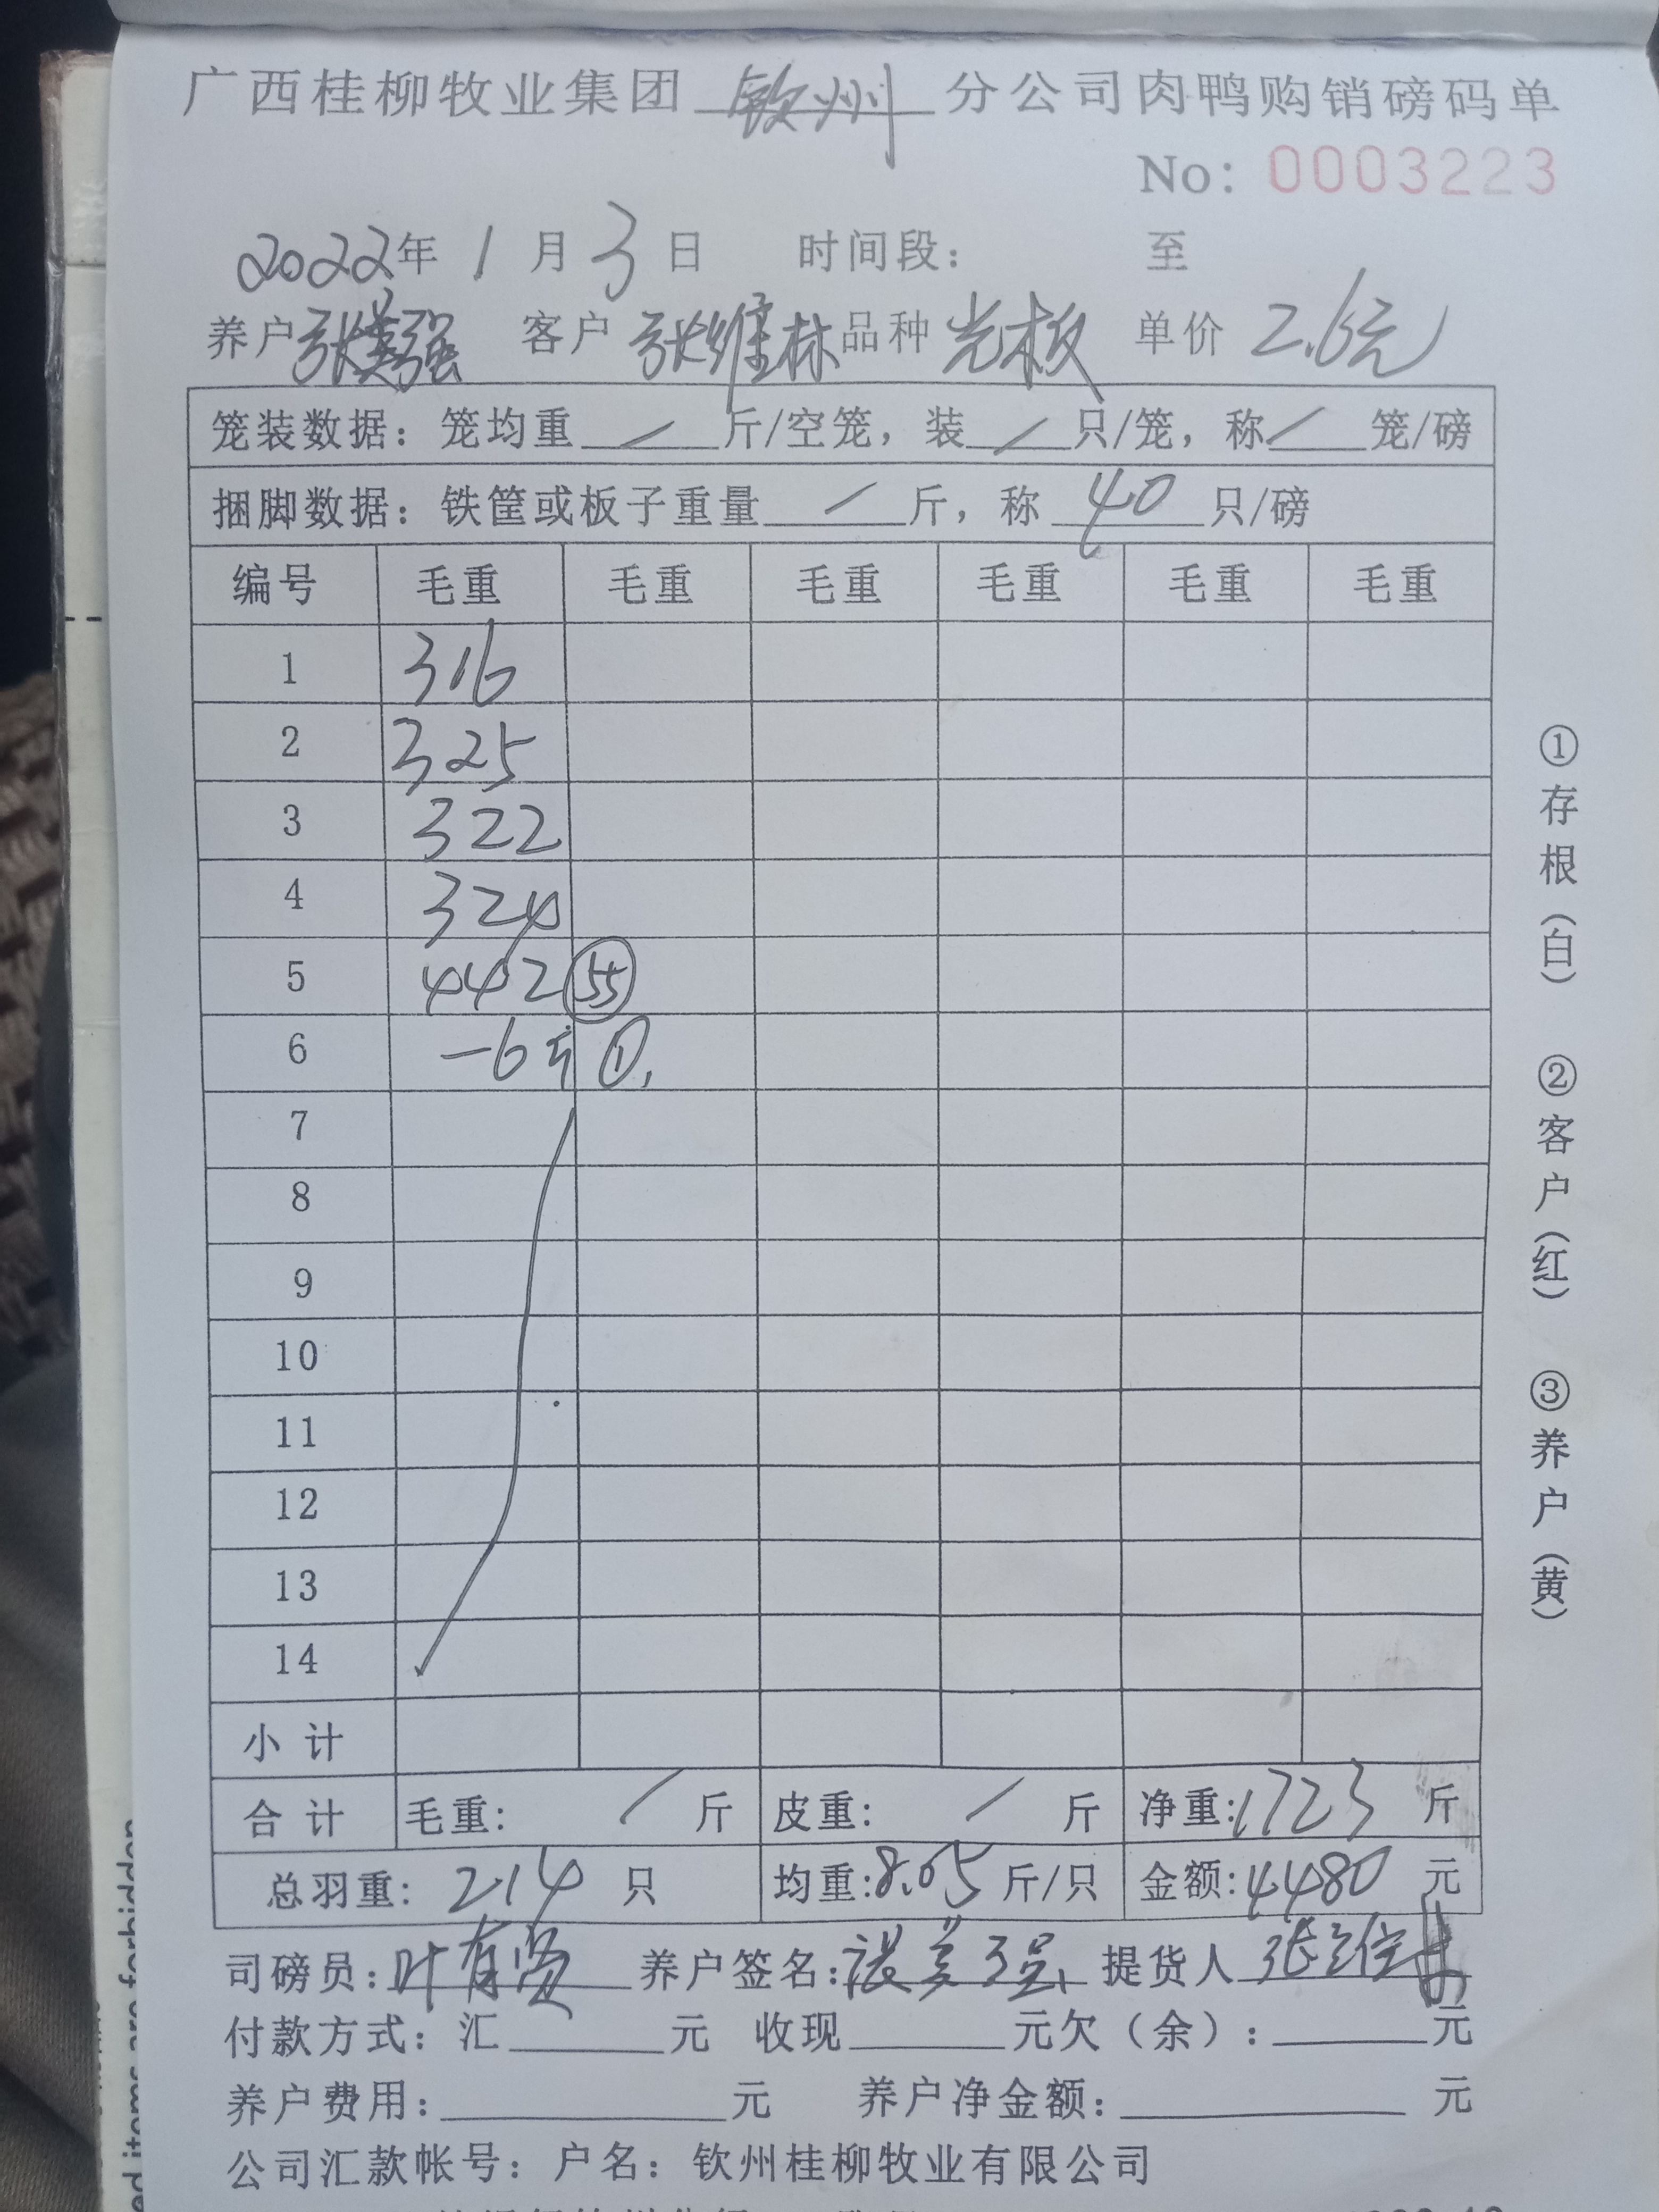 广西桂柳牧业集团 钦州 分公司肉鸭购销磅码单
No: 0003223
2022年 1 月 3 日 时间段: 至
养户 张美强 客户 张维林 品种 光板 单价 2.6元
笼装数据: 笼均重 / 斤/空笼, 装 / 只/笼, 称 / 笼/磅
捆脚数据: 铁筐或板子重量 / 斤, 称 40 只/磅
编号 毛重 毛重 毛重 毛重 毛重 毛重
1 316
2 325
3 322
4 324
5 442 55
6 -6斤 ①
7
8
9
10
11
12
13
14
小计
合计 毛重: / 斤 皮重: / 斤 净重: 1723 斤
总羽重: 214 只 均重: 8.05 斤/只 金额: 4480 元
司磅员: 叶有贤 养户签名: 张美强 提货人 张维林
付款方式: 汇 元 收现 元欠(余): 元
养户费用: 元 养户净金额: 元
公司汇款帐号: 户名: 钦州桂柳牧业有限公司
①存根(白) ②客户(红) ③养户(黄)
ed items are forbidden